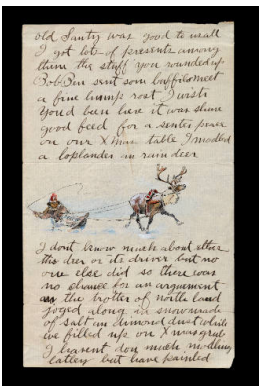 old Santy was good to us all
I got lots of presents among
them the stuff you rounded up
Bob Ben sent som buffilo meet
a fine hump rost I wish
Youd been here it was shure
good feed for a senter peace
on our Xmas table I modled
a loplander in raindeer
I dont know much about ether
the deer or its driver but no
one else did so there was
no chance for an argument
as the trotter of north land
joged along in snow made
of salt an dimond dust while
we filled up on Xmas grub
I havent don much modling
latley but have painted